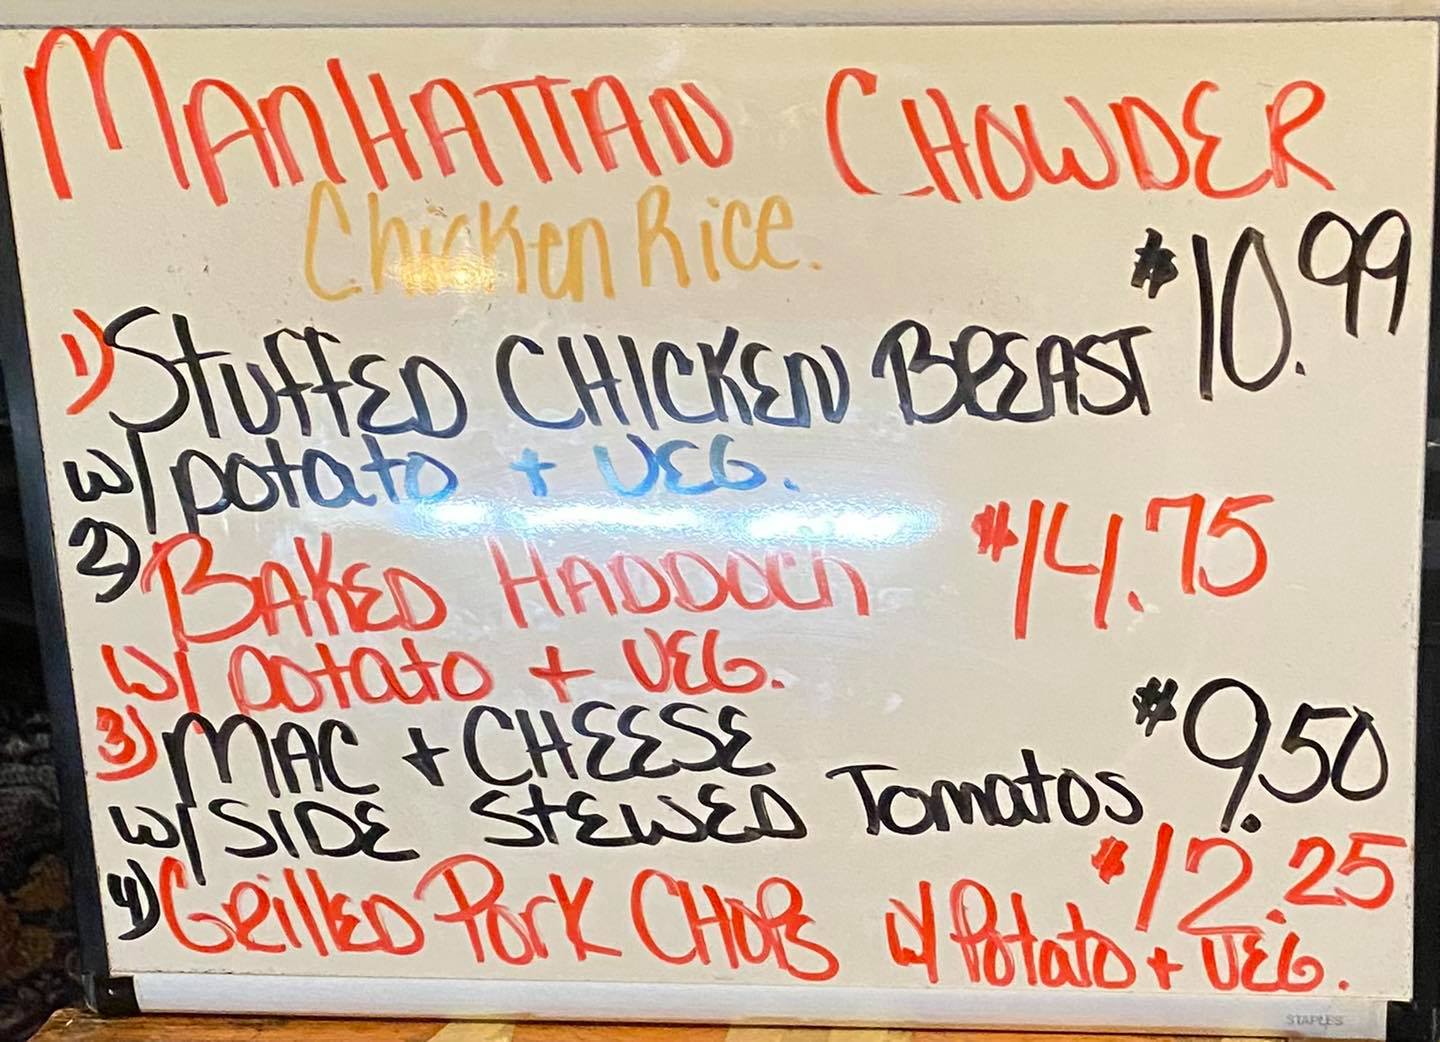 MANHATTAN CHOWDER
Chicken Rice.
1) Stuffed CHICKEN BREAST $10.99
w/ potato + VEG.
2) BAKED HADDOCK $14.75
w/ potato + VEG.
3) MAC + CHEESE $9.50
w/ SIDE STEWED Tomatos
4) Grilled Pork CHOPS $12.25
w/ Potato + VEG.
STAPLES